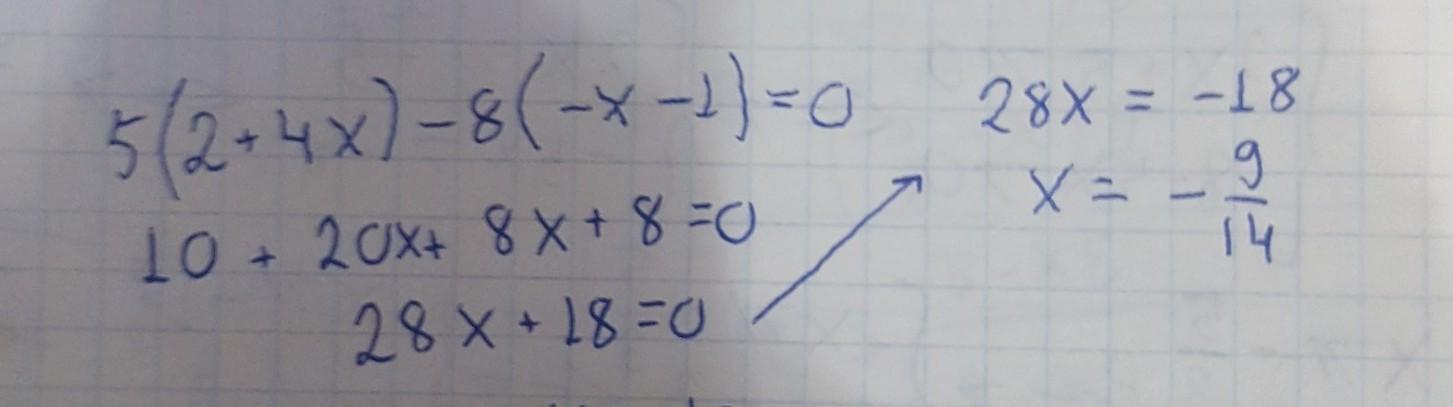 5(2+4x)-8(-x-1)=0
10+20x+8x+8=0
28x+18=0
28x=-18
x=-9/14